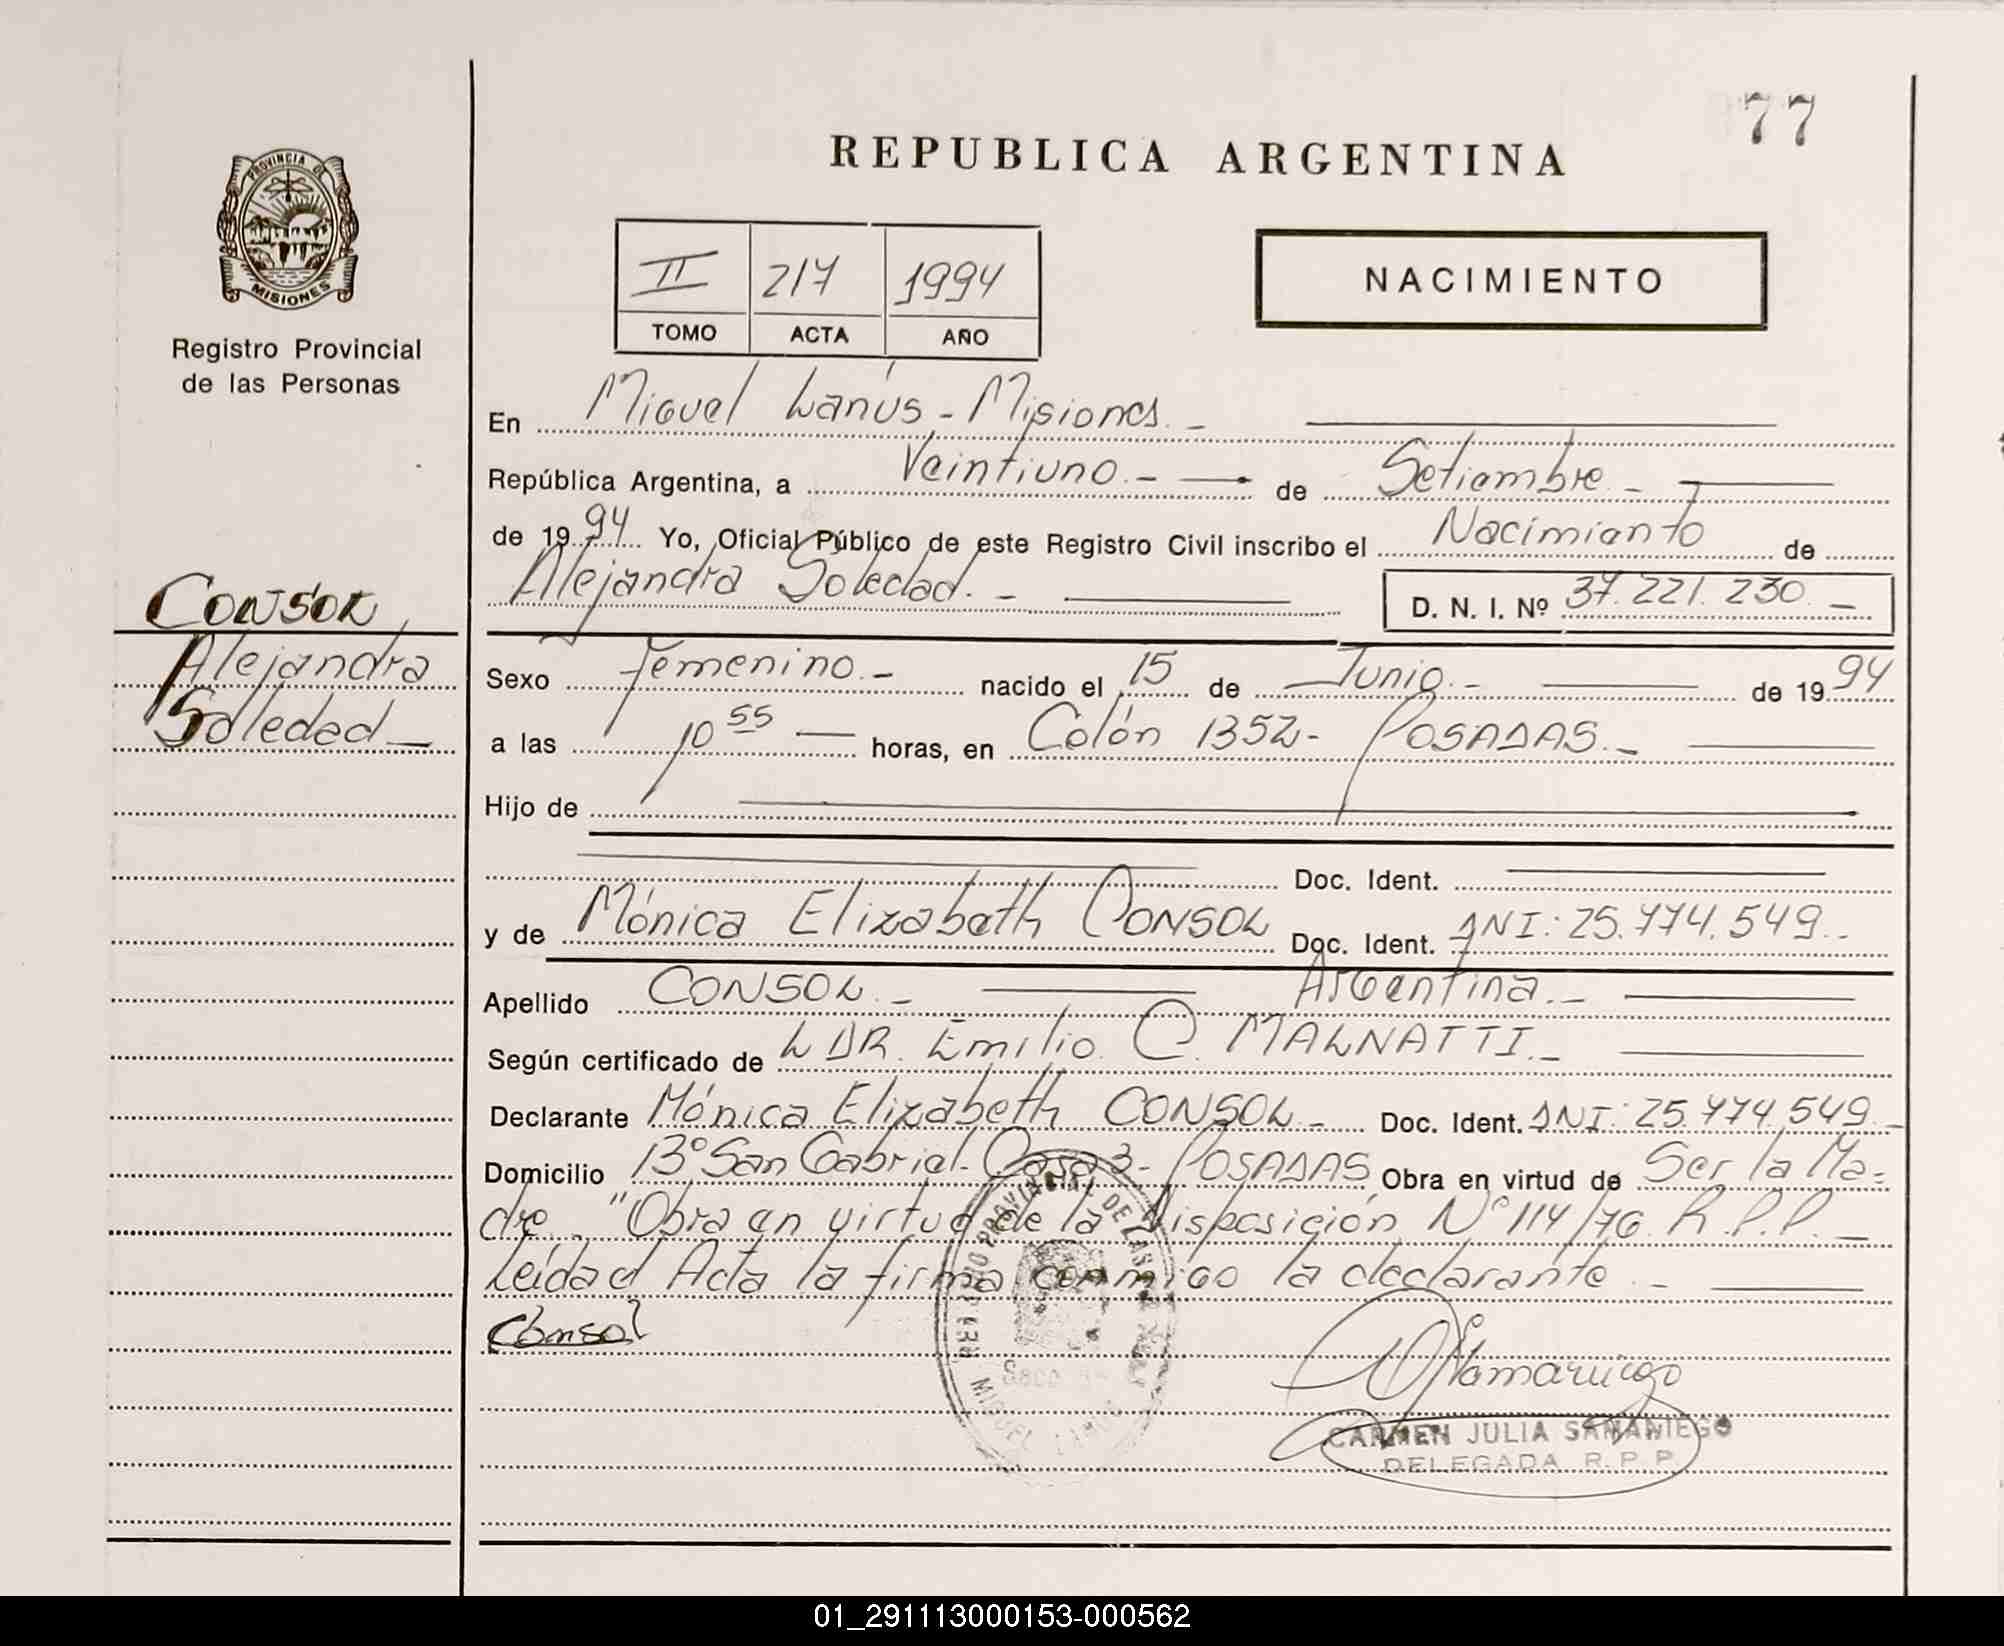 77
REPUBLICA ARGENTINA
PROVINCIA DE
MISIONES
Registro Provincial
de las Personas
II 217 1994
TOMO ACTA AÑO
NACIMIENTO
En Miguel Lanús - Misiones. -
República Argentina, a Veintiuno. - de Setiembre -
de 1994 Yo, Oficial Público de este Registro Civil inscribo el Nacimiento de
Alejandra Soledad. - D. N. I. Nº 37.221.230. -
CONSOL
Alejandra
Soledad -
Sexo Femenino. - nacido el 15 de Junio. - de 1994
a las 10 55 horas, en Colón 1352 - POSADAS. -
Hijo de
Doc. Ident.
y de Mónica Elizabeth CONSOL Doc. Ident. DNI: 25.774.549. -
Apellido CONSOL. - Argentina. -
Según certificado de L DR. Emilio C. MALNATTI. -
Declarante Mónica Elizabeth CONSOL - Doc. Ident. DNI: 25.774.549. -
Domicilio Bº San Gabriel - Casa 3 - POSADAS Obra en virtud de Ser la Ma=
dre. "Obra en virtud de la Disposición Nº 114/76 R.P.P. -
Leída el Acta la firma conmigo la declarante. -
Consol
REGISTRO PROVINCIAL DE LAS
MIGUEL LANUS
CARMEN JULIA SAMANIEGO
DELEGADA R.P.P.
01_291113000153-000562